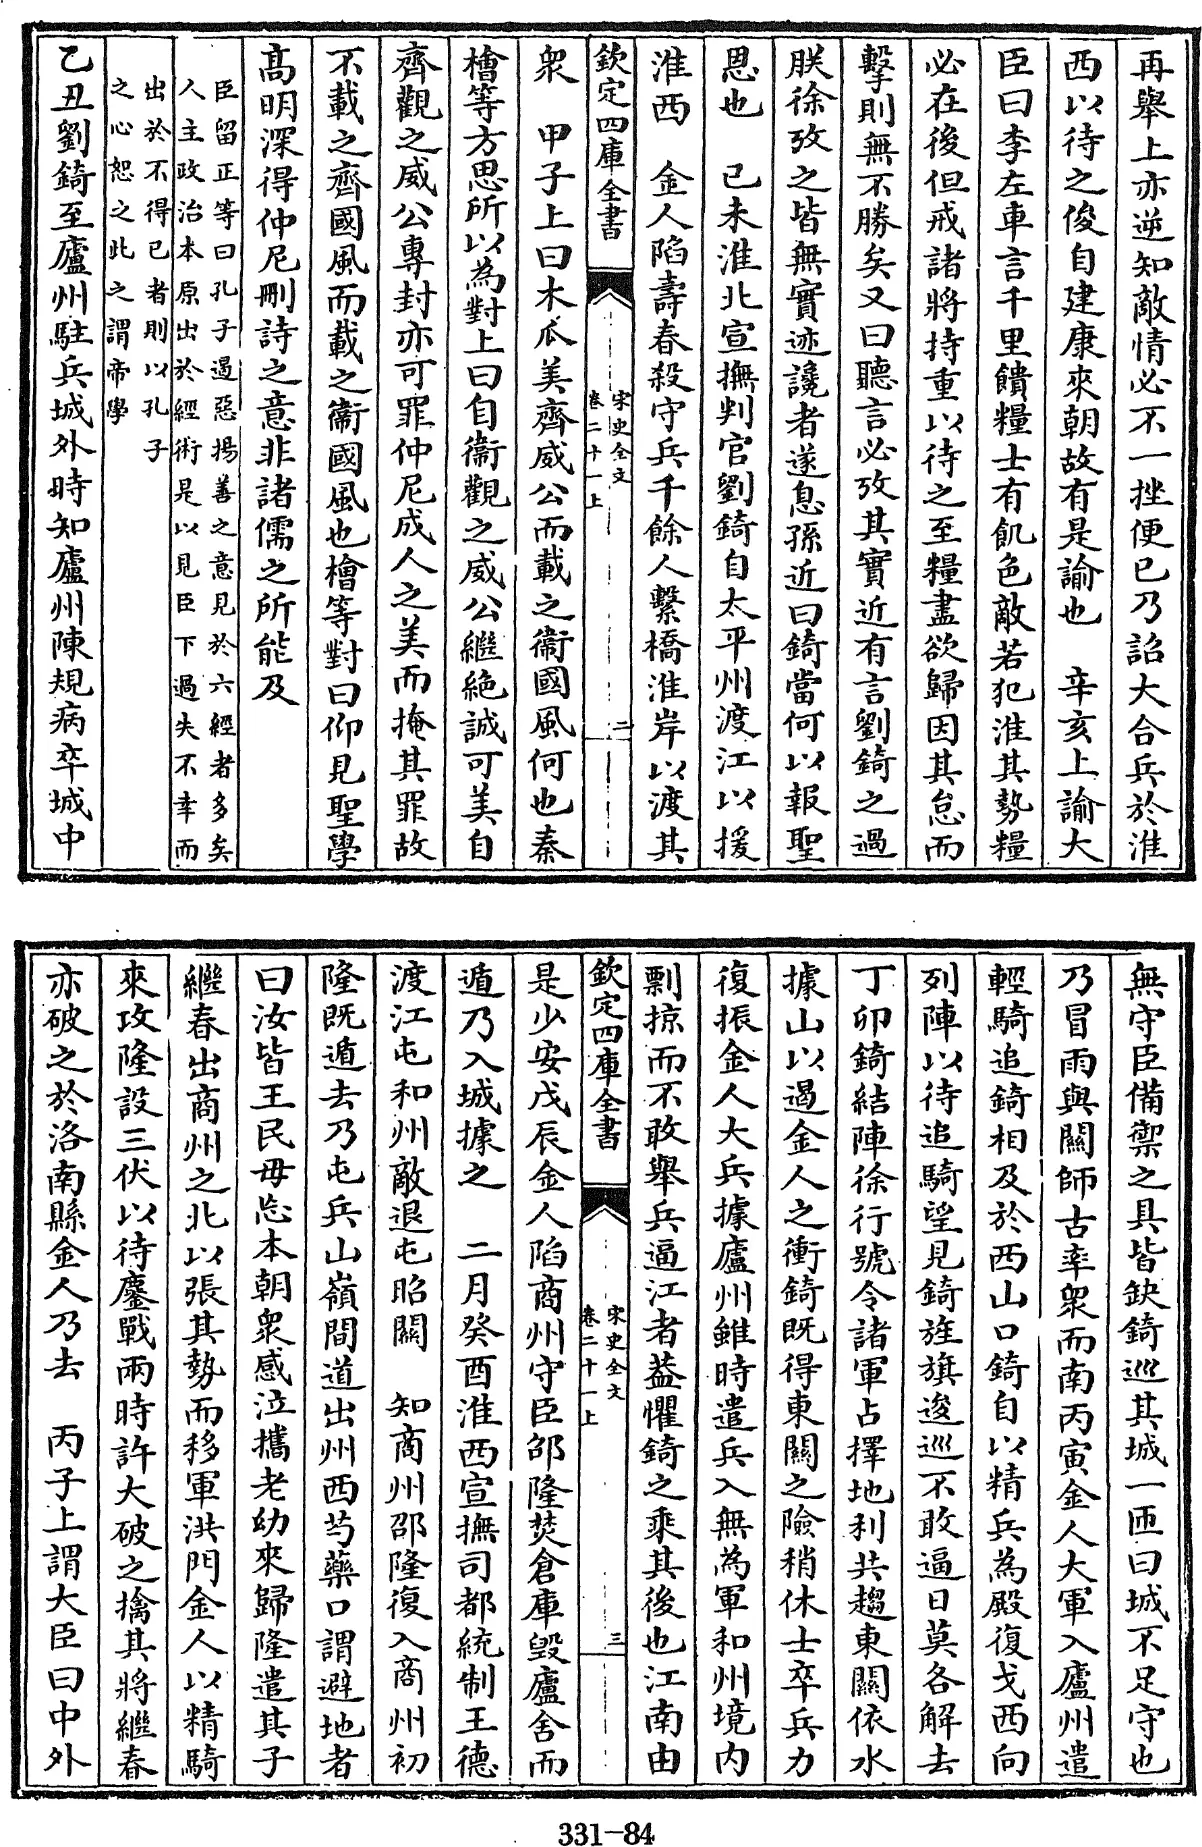 再舉上亦逆知敵情必不一挫便已乃詔大合兵於淮
西以待之俊自建康來朝故有是諭也　辛亥上諭大
臣曰李左車言千里饋糧士有飢色敵若犯淮其勢糧
必在後但戒諸將持重以待之至糧盡欲歸因其怠而
擊則無不勝矣又曰聽言必攷其實近有言劉錡之過
朕徐攷之皆無實迹讒者遂息孫近曰錡當何以報聖
恩也　己未淮北宣撫判官劉錡自太平州渡江以援
淮西　金人陷壽春殺守兵千餘人繫橋淮岸以渡其
欽定四庫全書
宋史全文
卷二十一上
二
衆　甲子上曰木瓜美齊威公而載之衞國風何也秦
檜等方思所以為對上曰自衞觀之威公繼絶誠可美自
齊觀之威公專封亦可罪仲尼成人之美而掩其罪故
不載之齊國風而載之衞國風也檜等對曰仰見聖學
髙明深得仲尼刪詩之意非諸儒之所能及
臣留正等曰孔子遏惡揚善之意見於六經者多矣
人主政治本原出於經術是以見臣下過失不幸而
出於不得已者則以孔子
之心恕之此之謂帝學
乙丑劉錡至廬州駐兵城外時知廬州陳規病卒城中
無守臣備禦之具皆缺錡巡其城一匝曰城不足守也
乃冒雨與關師古率衆而南丙寅金人大軍入廬州遣
輕騎追錡相及於西山口錡自以精兵為殿復戈西向
列陣以待追騎望見錡旌旗逡巡不敢逼日莫各解去
丁卯錡結陣徐行號令諸軍占擇地利共趨東關依水
據山以遏金人之衝錡既得東關之險稍休士卒兵力
復振金人大兵據廬州雖時遣兵入無為軍和州境内
剽掠而不敢舉兵逼江者葢懼錡之乘其後也江南由
欽定四庫全書
宋史全文
卷二十一上
三
是少安戊辰金人陷商州守臣邵隆焚倉庫毀廬舍而
遁乃入城據之　二月癸酉淮西宣撫司都統制王德
渡江屯和州敵退屯昭關　知商州邵隆復入商州初
隆既遁去乃屯兵山嶺間道出州西芍藥口謂避地者
曰汝皆王民毋忘本朝衆感泣攜老幼來歸隆遣其子
繼春出商州之北以張其勢而移軍洪門金人以精騎
來攻隆設三伏以待鏖戰兩時許大破之擒其將繼春
亦破之於洛南縣金人乃去　丙子上謂大臣曰中外
331-84